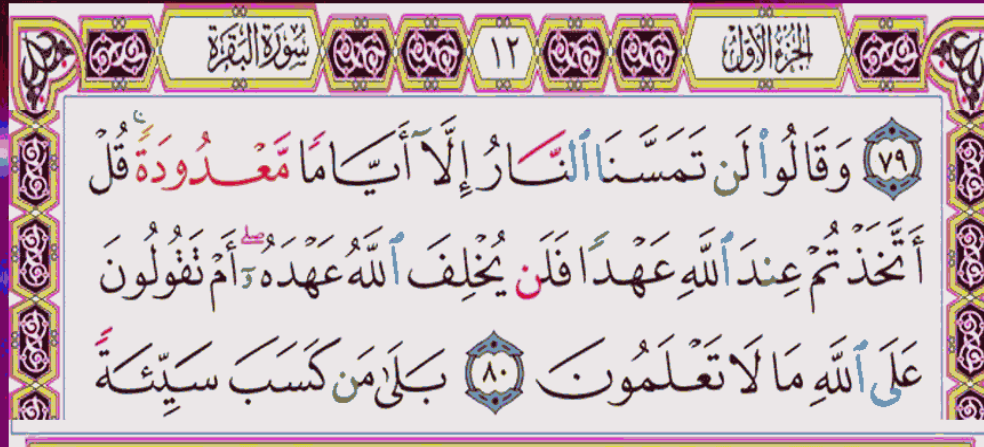 الجزء الأول ١٢ سورة البقرة
٧٩ وَقَالُوا۟ لَن تَمَسَّنَا ٱلنَّارُ إِلَّآ أَيَّامًا مَّعْدُودَةً ۚ قُلْ
أَتَّخَذْتُمْ عِندَ ٱللَّهِ عَهْدًا فَلَن يُخْلِفَ ٱللَّهُ عَهْدَهُۥٓ ۖ أَمْ تَقُولُونَ
عَلَى ٱللَّهِ مَا لَا تَعْلَمُونَ ٨٠ بَلَىٰ مَن كَسَبَ سَيِّئَةً